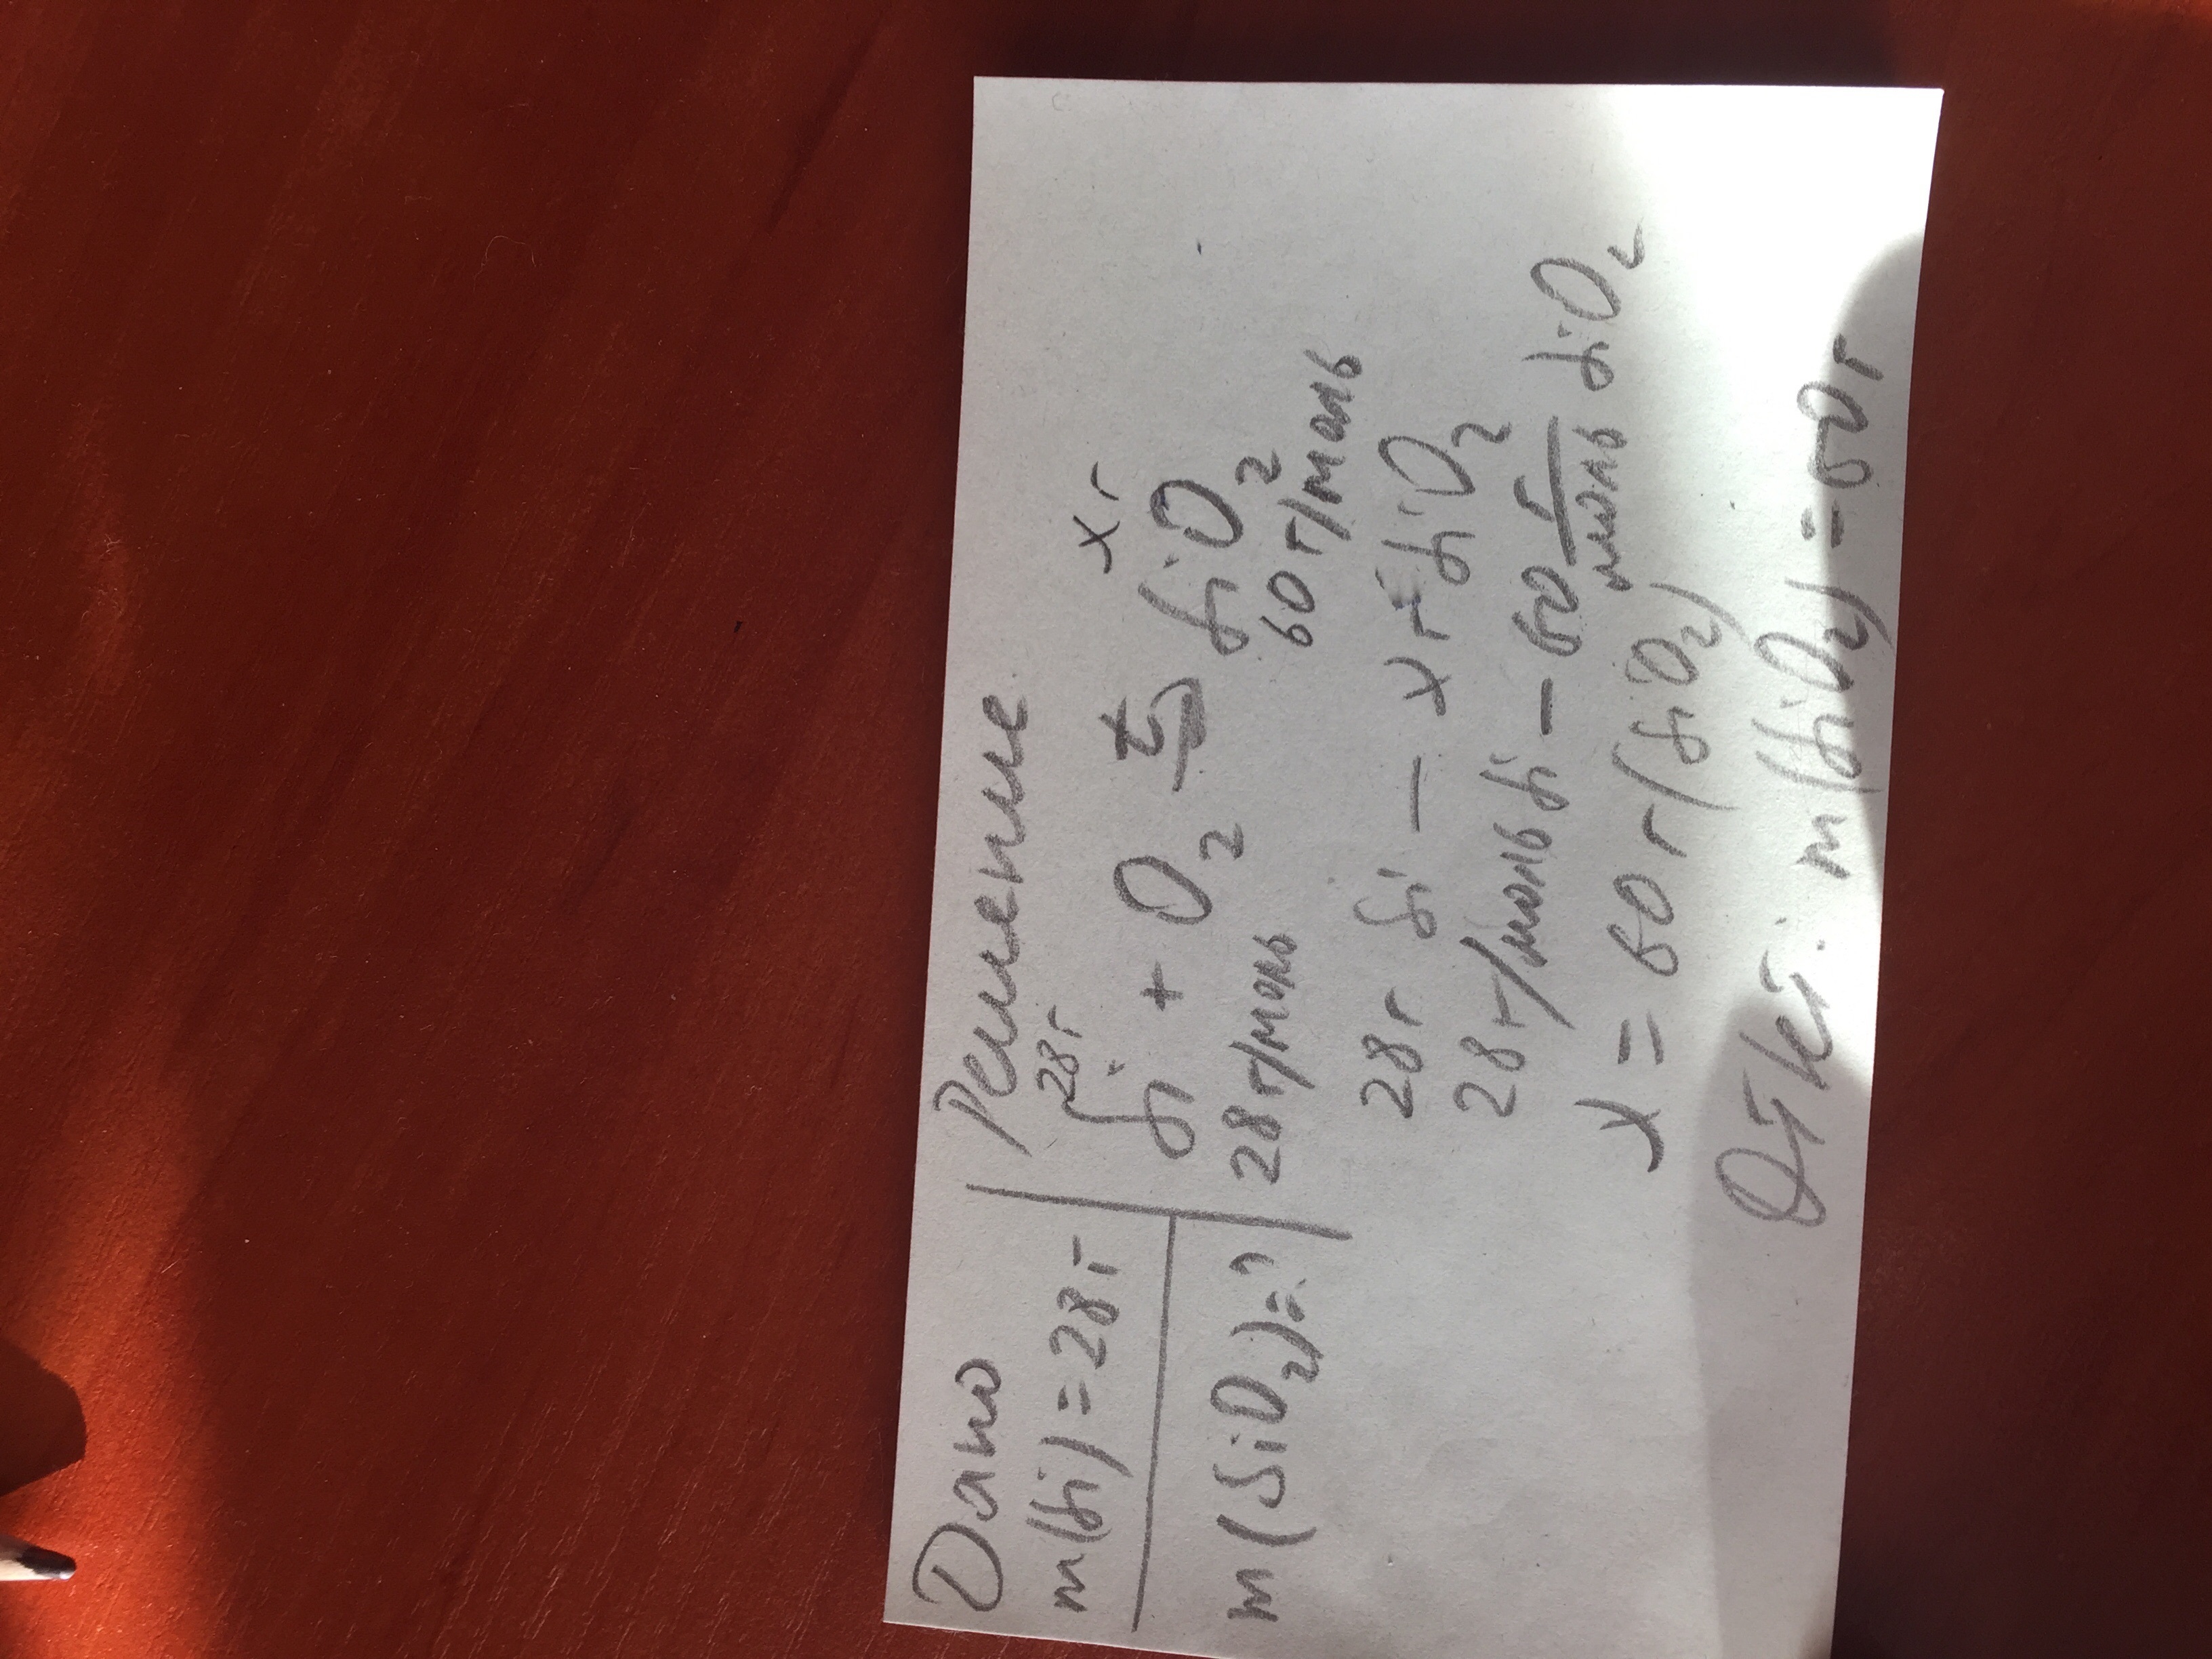 Дано
m(Si)=28г
m(SiO2)=?
Решение
28г xг
Si + O2 t→ SiO2
28г/моль 60г/моль
28г Si — xг SiO2
28г/моль Si — 60 г/моль SiO2
x = 60г(SiO2)
Ответ: m(SiO2)=60г